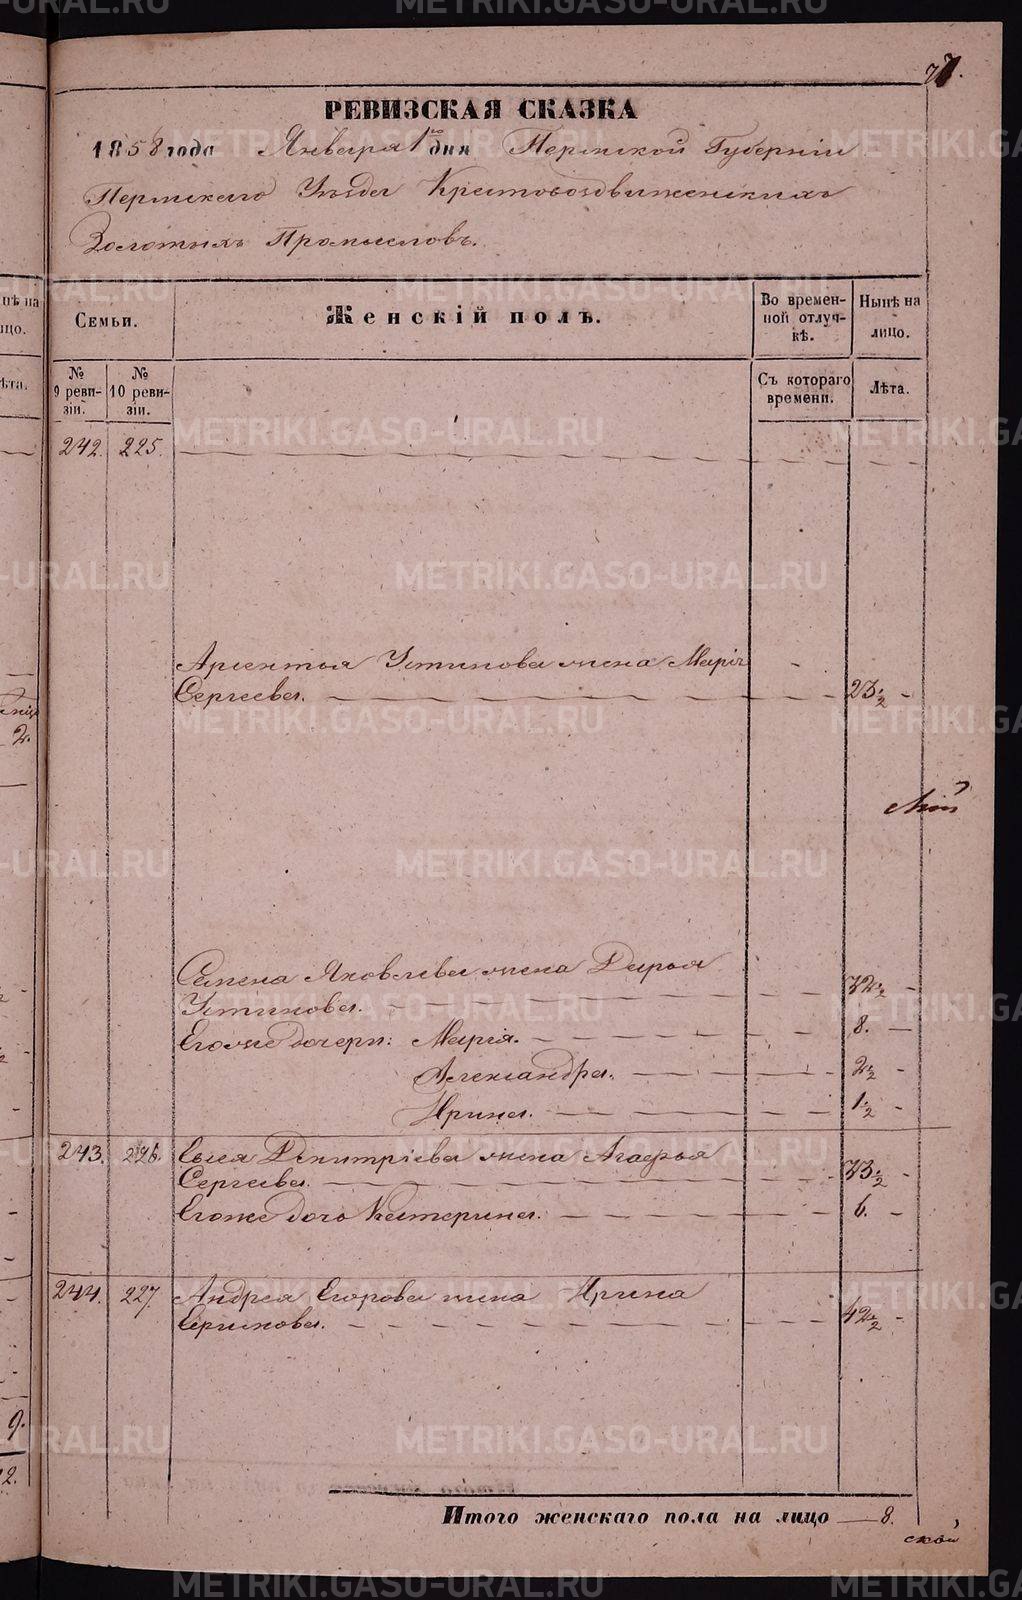 77.
РЕВИЗСКАЯ СКАЗКА
1858 года Января 1го дня Пермской Губерніи
Пермскаго Уѣзда Крестовоздвиженскихъ
Золотыхъ Промысловъ.
Семьи.
Женскій полъ.
Во времен-
ной отлуч-
кѣ.
Нынѣ на
лицо.
№
9 реви-
зіи.
№
10 реви-
зіи.
Съ котораго
времени.
Лѣта.
242. 225.
Арсентья Устинова жена Марія
Сергеева. 23 1/2
Семена Яковлева жена Дарья
Устинова. 32 1/2
Его же дочери: Марія. 8.
Александра. 2 1/2
Ирина. 1/2
243. 226. Сысоя Дмитріева жена Агафья
Сергеева. 33 1/2
Егоже дочь Катерина. 6.
244. 227. Андрея Егорова жена Ирина
42 1/2
Итого женскаго пола на лицо 8.
ской
METRIKI.GASO-URAL.RU